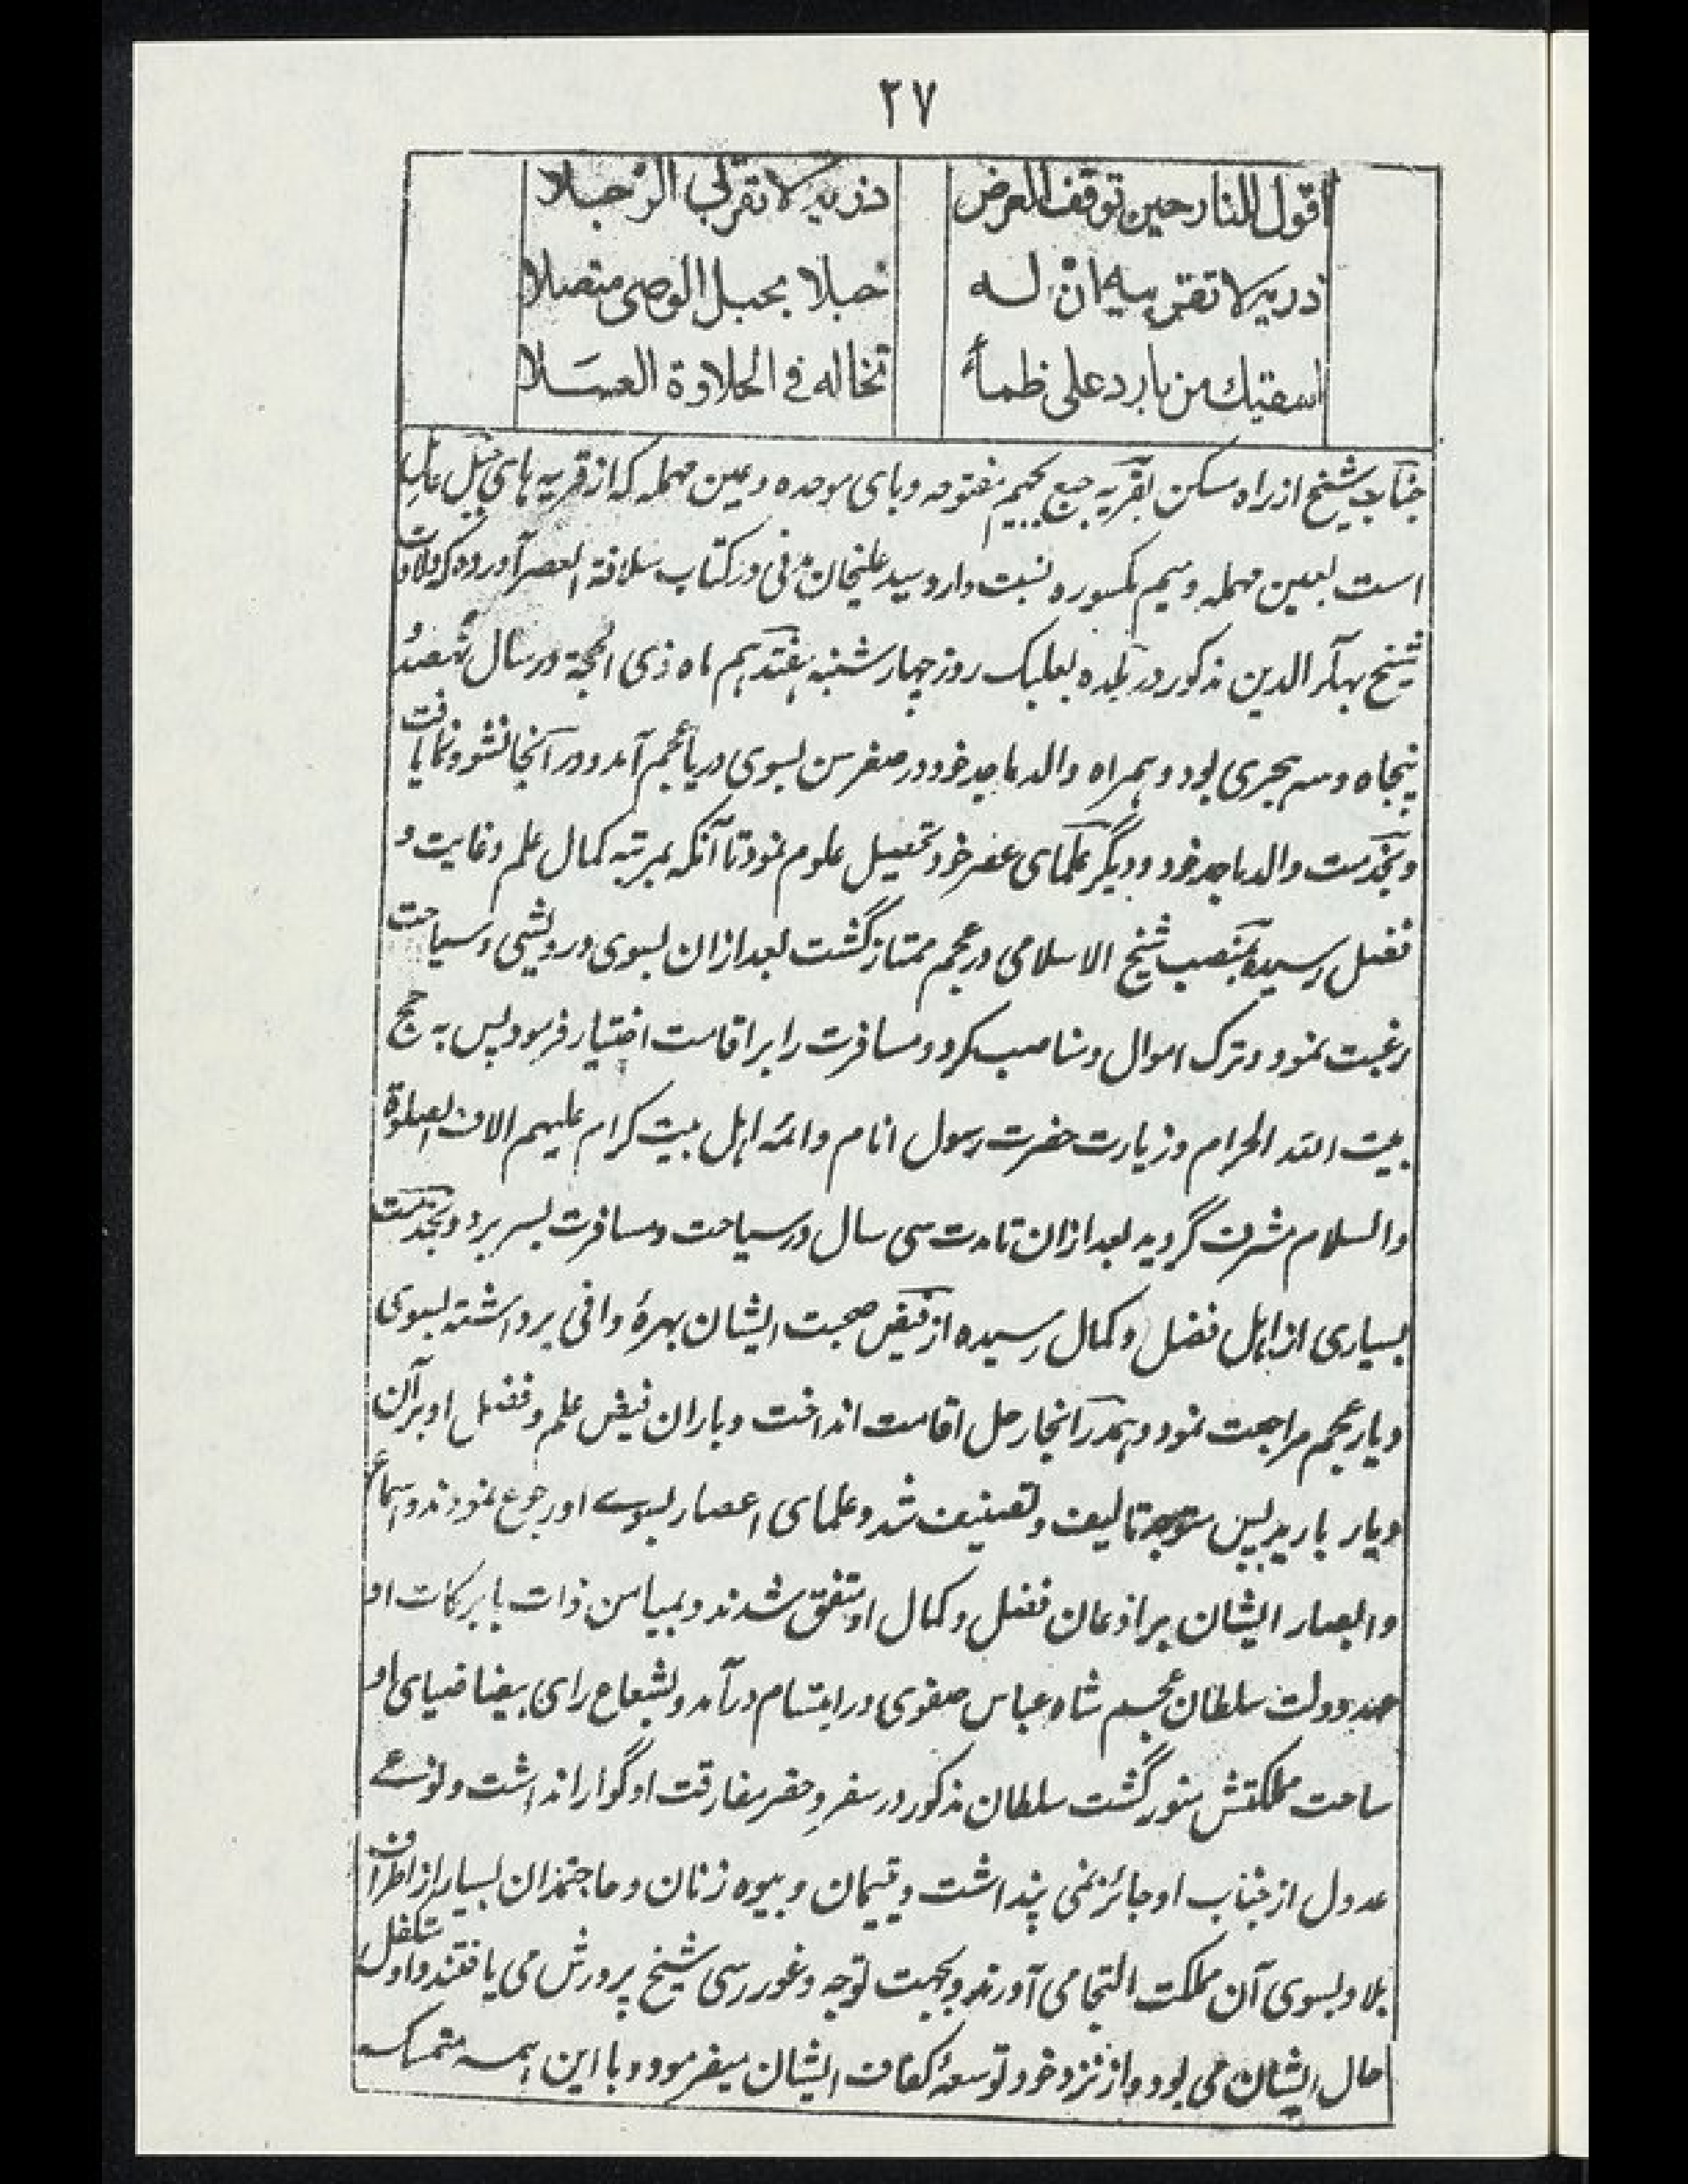 ۲۷
اقول للنار حين توقف للعرض
ذريه لا تقربي الرجلا
ذريه لا تقربيه ان له
حبلا بحبل الوصي متصلا
اسقيك من بارد على ظمأ
تخاله في الحلاوة العسلا
جناب شیخ از راه مسکن بقریه جبع بجیم مفتوحه و بای موحده و عین مهمله که از قریه های جبل عامل
است بعین مهمله و میم مکسوره نسبت دارد و سید علیخان مدنی در کتاب سلافة العصر آورده که ولادت
شیخ بهاء الدین مذکور در بلده بعلبک روز چهار شنبه هفتدهم ماه ذی الحجة در سال نهصد و
پنجاه و سه هجری بود و همراه والد ماجد خود در صغر سن بسوی دیار عجم آمد و در آنجا نشو و نما یافت
و بخدمت والد ماجد خود و دیگر علمای عصر خود تحصیل علوم نمود تا آنکه بمرتبه کمال علم و غایت و
فضل رسیده بمنصب شیخ الاسلامی در عجم ممتاز گشت بعد ازان بسوی درویشی و سیاحت
رغبت نمود و ترک اموال و مناصب کرد و مسافرت را بر اقامت اختیار فرمود پس به حج
بیت الله الحرام و زیارت حضرت رسول انام و ائمه اهل بیت کرام علیهم الاف الصلوة
والسلام مشرف گردید بعد ازان تا مدت سی سال در سیاحت و مسافرت بسر برد و بخدمت
بسیاری از اهل فضل و کمال رسیده از فیض صحبت ایشان بهرهٔ وافی برداشته بسوی
دیار عجم مراجعت نمود و همدر آنجا رحل اقامت انداخت و باران فیض علم و فضل او بر آن
دیار بارید پس متوجه تالیف و تصنیف شد و علمای اعصار بسوے او رجوع نمودند و اسماع
و ابصار ایشان بر اذعان فضل و کمال او متفق شدند و بمیامن ذات با برکات او
دولت سلطان عجم شاه عباس صفوی در ابتسام درآمد و بشعاع رای بیضا ضیای او
ساحت مملکتش منور گشت سلطان مذکور در سفر و حضر مفارقت او گوارا نداشت و نوعے
عدول از جناب او جائز نمی پنداشت و یتیمان و بیوه زنان و حاجتمندان بسیار از اطراف
بلاد بسوی آن مملکت التجا می آوردند و بجهت توجه و غور رسی شیخ پرورش می یافتند و او متکفل
حال ایشان می بود و از نزد خود توسعهٔ کفاف ایشان میفرمود و با این همه متمسک